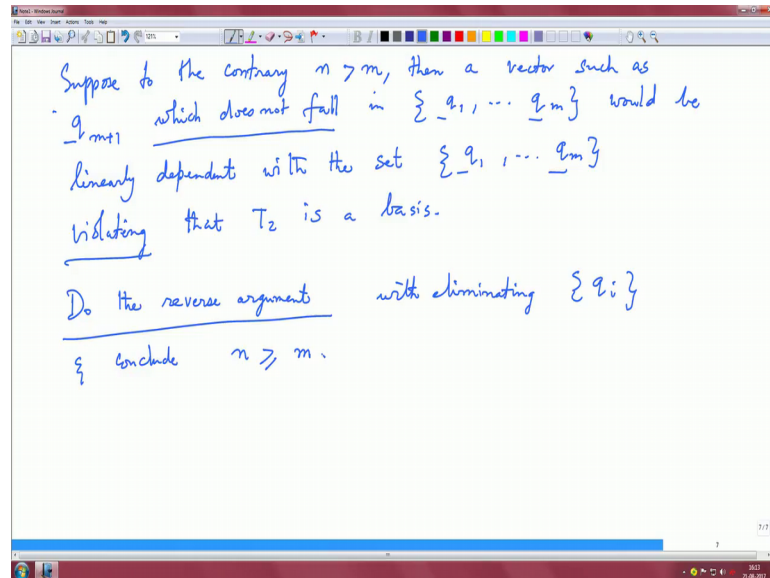 Note1 - Windows Journal
File Edit View Insert Actions Tools Help
121%
B I
Suppose to the contrary n > m, then a vector such as
q_{m+1} which does not fall in { q_1, ... q_m } would be
linearly dependent with the set { q_1, ... q_m }
violating that T_2 is a basis.
Do the reverse argument with eliminating { q_i }
& conclude n ≥ m.
7/7
7
16:13
21-08-2017